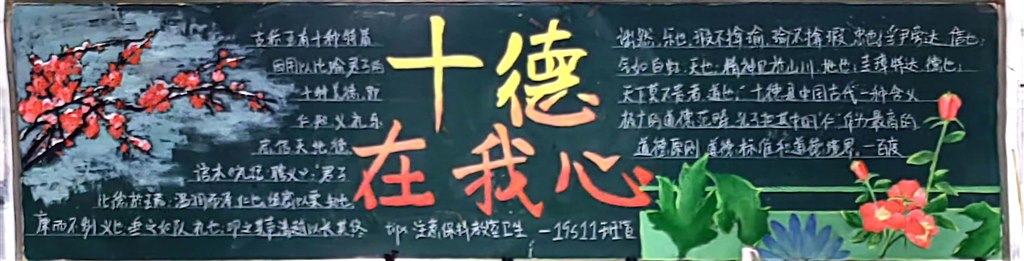 十德
在我心
古称玉有十种特质
因用以比喻君子的
十种美德，即
仁知义礼乐
忠信天地德
语本《礼记·聘义》：君子
比德於玉焉：温润而泽仁也，缜密以栗知也
廉而不刿义也，垂之如队礼也，叩之其声清越以长其终
诎然，乐也，瑕不掩瑜，瑜不掩瑕，忠也，孚尹旁达，信也，
气如白虹，天也，精神见於山川，地也；圭璋特达，德也；
天下莫不贵者，道也。”十德是中国古代一种含义
极广的道德范畴，孔子把其中的“仁”作为最高的
道德原则、道德标准和道德境界。—百度
tips 注意保持教室卫生 —19511班宣